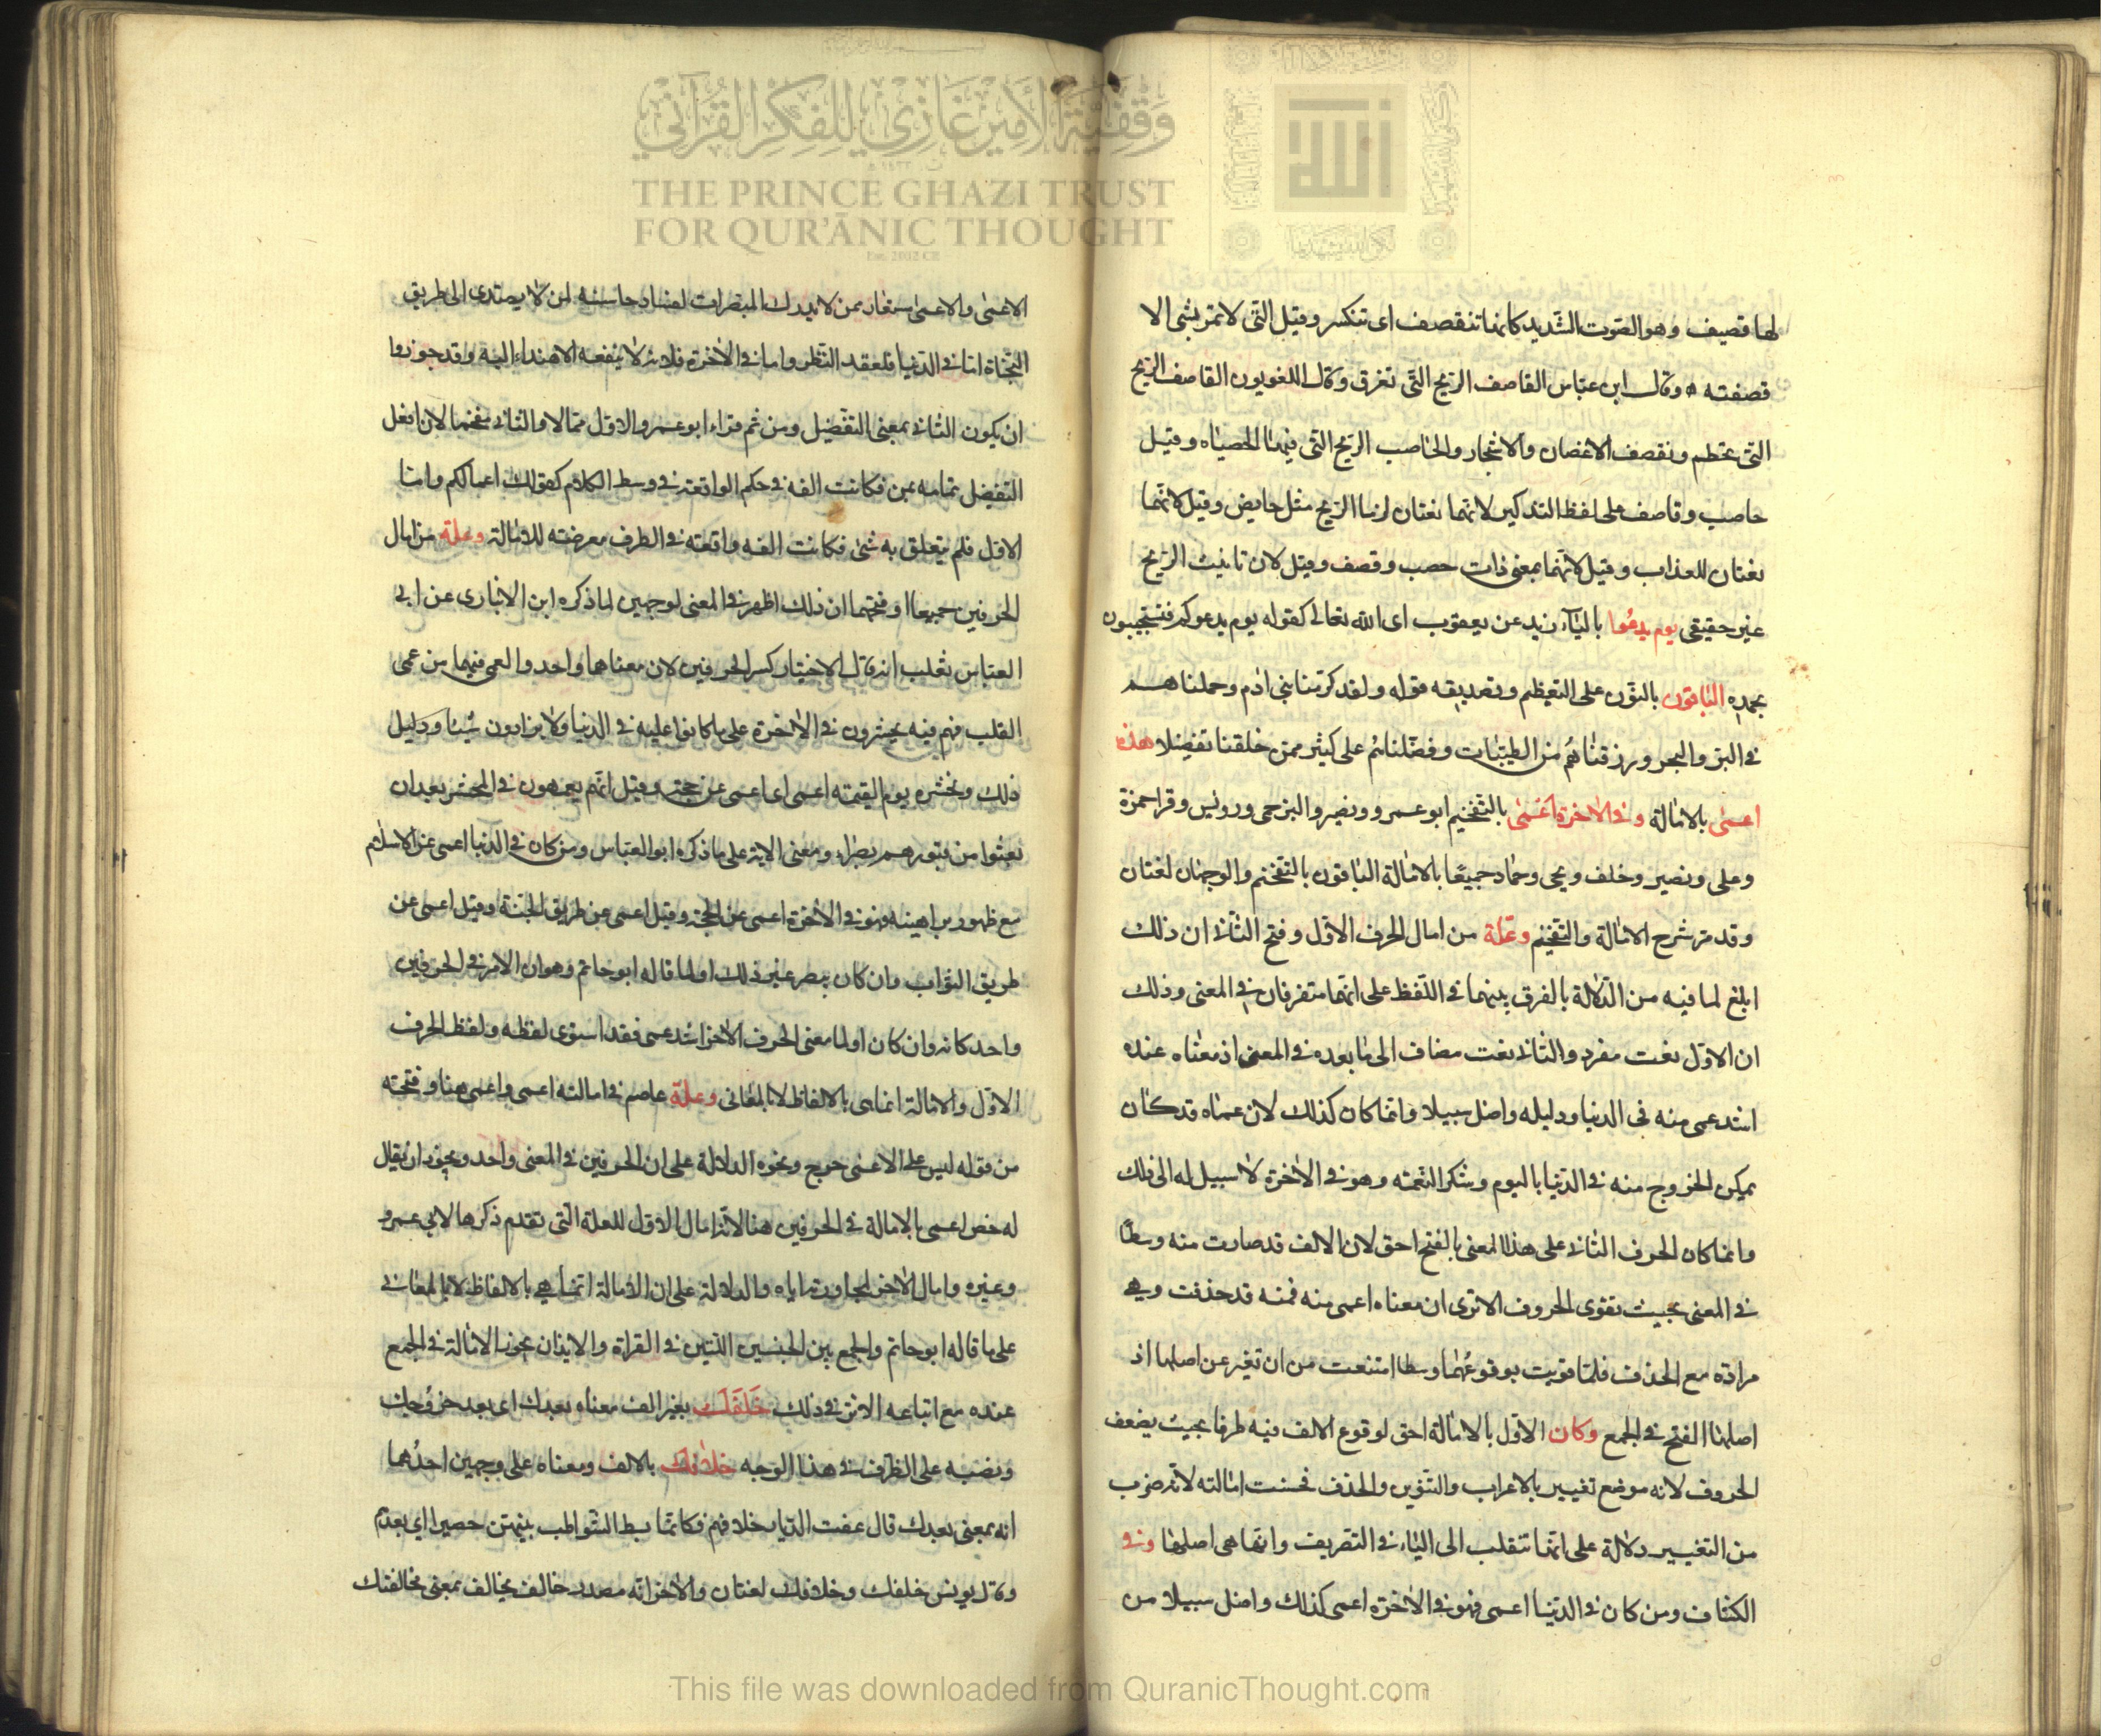 وَقْفِيَّةُ الأَمِيرِ غَازِي لِلفِكْرِ القُرْآنِي
THE PRINCE GHAZI TRUST
FOR QUR'ĀNIC THOUGHT
Est. 2012 CE
الله
لها قصيف وهو الصوت الشديد كانها تنقصف اى تنكسر وقيل التى لا تمر بشى الا
قصفته وقال ابن عباس القاصف الريح التى تغرق وقال اللغويون القاصف الريح
التى تحطم وتقصف الاغصان والاشجار والحاصب الريح التى فيها الحصباه وقيل
حاصب وقاصف على لفظ التذكير لانهما نعتان لزما الريح مثل حايض وقيل لانهما
نعتان للعذاب وقيل لانهما بمعنى ذات حصب وقصف وقيل لان تانيث الريح
غير حقيقى يوم يدعوا بالياء زيد عن يعقوب اى الله تعالى كقوله يوم يدعوكم فتستجيبون
بحمده الباقون بالنون على التعظيم وتصديقه قوله ولقد كرمنا بنى ادم وحملناهم
فى البر والبحر ورزقناهم من الطيبات وفضلناهم على كثير ممن خلقنا تفضيلا هذه
اعمى بالامالة وفى الاخرة اعمى بالتفخيم ابو عمرو ونصير والبرجمى ورويس وقرا حمزة
وعلى ونصير وخلف ويحيى وحماد جميعا بالامالة الباقون بالتفخيم والوجهان لغتان
وقد مر شرح الامالة والتفخيم وعلة من امال الحرف الاول وفتح الثانى ان ذلك
ابلغ لما فيه من الدلالة بالفرق بينهما فى اللفظ على انهما متفرقان فى المعنى وذلك
ان الاول نعت مفرد والثانى نعت مضاف الى ما بعده فى المعنى اذ معناه عنده
اشد عمى منه فى الدنيا ودليله واضل سبيلا وانما كان كذلك لان عماه قد كان
يمكن الخروج منه فى الدنيا باليوم وشكر النعمة وهو فى الاخرة لا سبيل له الى ذلك
وانما كان الحرف الثانى على هذا المعنى بالفتح احق لان الالف قد صارت منه وسطا
فى المعنى بحيث تقوى الحروف الا ترى ان معناه اعمى منه فمنه قد حذفت وهى
مرادة مع الحذف فلما قويت بوقوعها وسطا امتنعت من ان تغير عن اصلها اذ
اصلها الفتح فى الجمع وكان الاول بالامالة احق لوقوع الالف فيه طرفا بحيث يضعف
الحروف لانه موضع تغيير بالاعراب والتنوين والحذف فحسنت امالته لانه ضرب
من التغيير دلالة على انها تنقلب الى الياء فى التصريف وانها هى اصلها وفى
الكشاف ومن كان فى الدنيا اعمى فهو فى الاخرة اعمى كذلك واضل سبيلا من
الاعمى والاعمى مستعار ممن لا يدرك المبصرات لفساد حاسته لمن لا يهتدى الى طريق
النجاة اما فى الدنيا فلفقد النظر واما فى الاخرة فلانه لا ينفعه الاهتداء اليه وقد جوزوا
ان يكون الثانى بمعنى التفضيل ومن ثم قراء ابو عمرو الاول ممالا والثانى مفخما لان افعل
التفضيل تمامه بمن فكانت الفه فى حكم الواقعة فى وسط الكلام كقولك اعمالكم واما
الاول فلم يتعلق به شى فكانت الفه واقعة فى الطرف معرضته للامالة وعلة من امال
الحرفين جميعا او فتحهما ان ذلك اظهر فى المعنى لوجهين لما ذكره ابن الانبارى عن ابى
العباس ثعلب انه قال الاختيار كسر الحرفين لان معناهما واحد والعمى فيهما من عمى
القلب فهم فيه يحشرون فى الاخرة على ما كانوا عليه فى الدنيا ولا يزادون شيئا ودليل
ذلك ونحشره يوم القيمة اعمى اى اعمى عن حجته وقيل انهم يعمهون فى المحشر بعد ان
بعثوا من قبورهم بصراء ومعنى الاية على ما ذكره ابو العباس ومن كان فى الدنيا اعمى عن الاسلام
مع ظهور براهينه فهو فى الاخرة اعمى عن الحجة وقيل اعمى عن طريق الجنة وقيل اعمى عن
طريق الثواب وان كان يبصر غير ذلك او لما قاله ابو حاتم وهو ان الامر فى الحرفين
واحد كانه وان كان اولما معنى الحرف الاخر اشد عمى فقد استوى لفظه ولفظ الحرف
الاول والامالة انما هى بالالفاظ لا بالمعانى وعلة عاصم فى امالته اعمى واعمى هنا وفتحته
من قوله ليس على الاعمى حرج ونحوه الدلالة على ان الحرفين فى المعنى واحد ويجوز ان يقال
له خص اعمى بالامالة فى الحرفين هنا لانه امال الاول للعلة التى تقدم ذكرها لابى عمرو
وغيره وامال الاخر لمجاورته اياه والدلالة على ان الامالة انما هى بالالفاظ لا بالمعانى
على ما قاله ابو حاتم والجمع بين الجنسين اللتين فى القراة والايذان بجواز الامالة فى الجمع
عنده مع اتباعه الاثر فى ذلك خلفك بغير الف معناه بعدك اى بعد خروجك
ونصبه على الظرف فى هذا الوجه خلافك بالالف ومعناه على وجهين احدهما
انه بمعنى بعدك قال عفت الديار خلافهم فكانما بسط الشواطب بينهن حصيرا اى بعدهم
وقال يونس خلفك وخلافك لغتان والاخر انه مصدر خالف يخالف بمعنى مخالفتك
This file was downloaded from QuranicThought.com